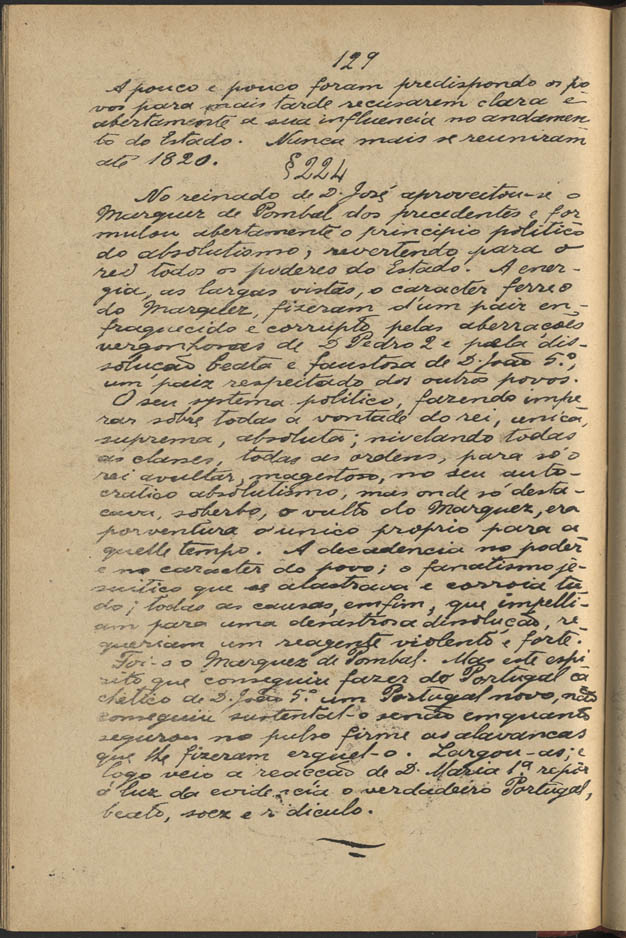 129
A pouco e pouco foram predispondo os po
vos para mais tarde recusarem clara e
abertamente a sua influencia no andamen
to do Estado. Nunca mais se reuniram
até 1820.
§224
No reinado de D. José aproveitou-se o
Marquez de Pombal dos precedentes e for
mulou abertamente o principio politico
do absolutismo, revertendo para o
rei todos os poderes do Estado. A ener-
gia, as largas vistas, o caracter ferreo
do Marquez, fizeram d'um paiz en-
fraquecido e corrupto pelas aberrações
vergonhosas de D. Pedro 2 e pela dis-
solução beata e faustosa de D. João 5.º,
um paiz respeitado dos outros povos.
O seu systema politico, fazendo impe
rar sobre todas a vontade do rei, unica,
suprema, absoluta; nivelando todas
as classes, todas as ordens, para só o
rei avultar, magestoso, no seu auto-
cratico absolutismo, mas onde só desta-
cava, soberbo, o vulto do Marquez, era
porventura o unico proprio para a
quelle tempo. A decadencia no poder
e no caracter do povo; o fanatismo je-
suitico que se alastrava e corroia tu
do; todas as causas, emfim, que impelli-
am para uma desastrosa dissolução, re-
queriam um reagente violento e forte.
Foi-o o Marquez de Pombal. Mas este espi
rito que conseguiu fazer do Portugal ca
chetico de D. João 5.º um Portugal novo, não
conseguiu sustental-o senão emquanto
segurou no pulso firme as alavancas
que lhe fizeram erguel-o. Largou-as; e
logo veio a reacção de D. Maria 1ª repôr
á luz da evidencia o verdadeiro Portugal,
beato, soez e ridiculo.